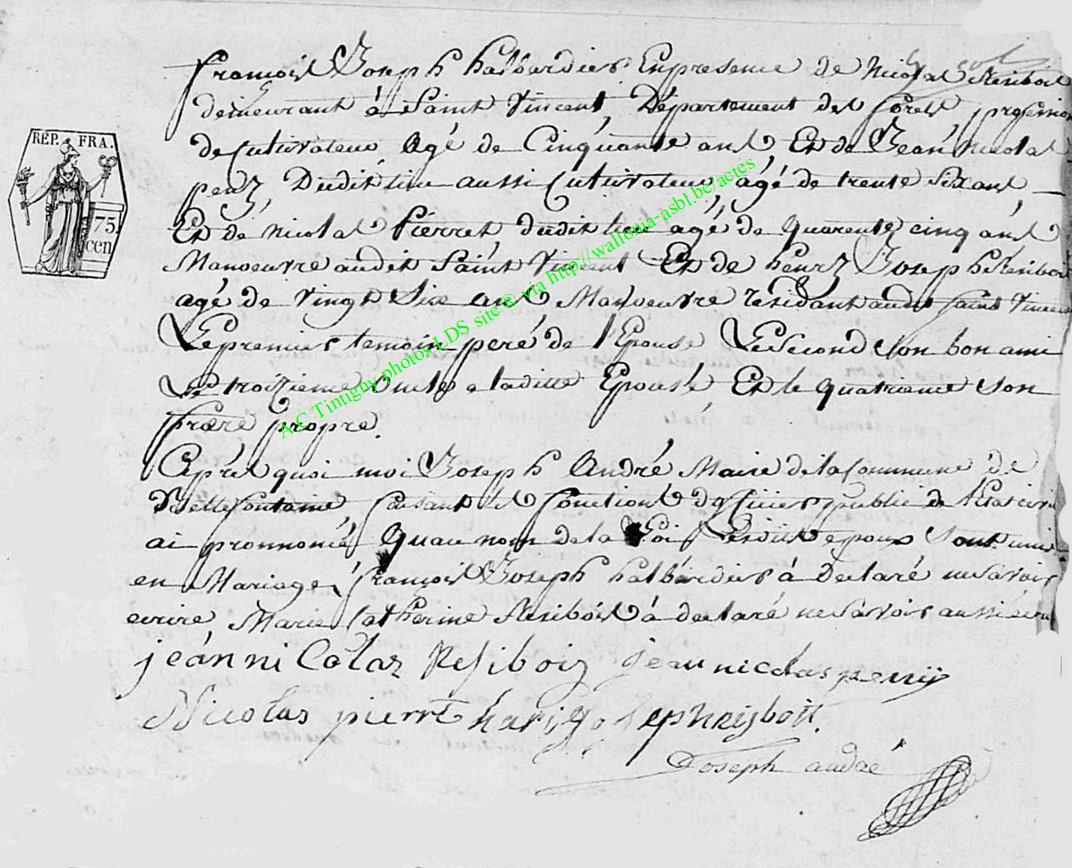 françois Joseph halbardier En presence de Nicolas Resibois
demeurant à Saint Vincent, Département des forets, profession
de Cutivateur Agé de Cinquante ans Et de Jean Nicolas
Dudit lieu aussi Cutivateur, agé de trente Six ans
REP. FRA.
75.
cen
Et de Nicolas Pierret dudit lieu agé de quarente cinq ans
Manoeuvre audit Saint Vincent Et de henry Joseph Resibois
agé de Vingt Six ans Manoeuvre residant audit saint Vincent
Le premier temoin pere de l'Epouse Le Second Son bon ami
Le troizieme Oncle a laditte Epouse Et le quatrieme Son
frere propre.
Après quoi moi Joseph André Maire de la Commune de
Bellefontaine faisant les fonctions d'officier public de l'Etat civil
ai prononcé Qu'au nom de la Loi Lesdits epoux Sont unis
en Mariage, françois Joseph halbardier à Declaré ne Savoir
ecrire Marie Catherine Resibois à declaré ne Savoir aussi
jean nicolas Resibois jean nicolas
Nicolas pierret
Joseph andré
AC Tintigny photos LDS site © via http://wallonia-asbl.be/actes